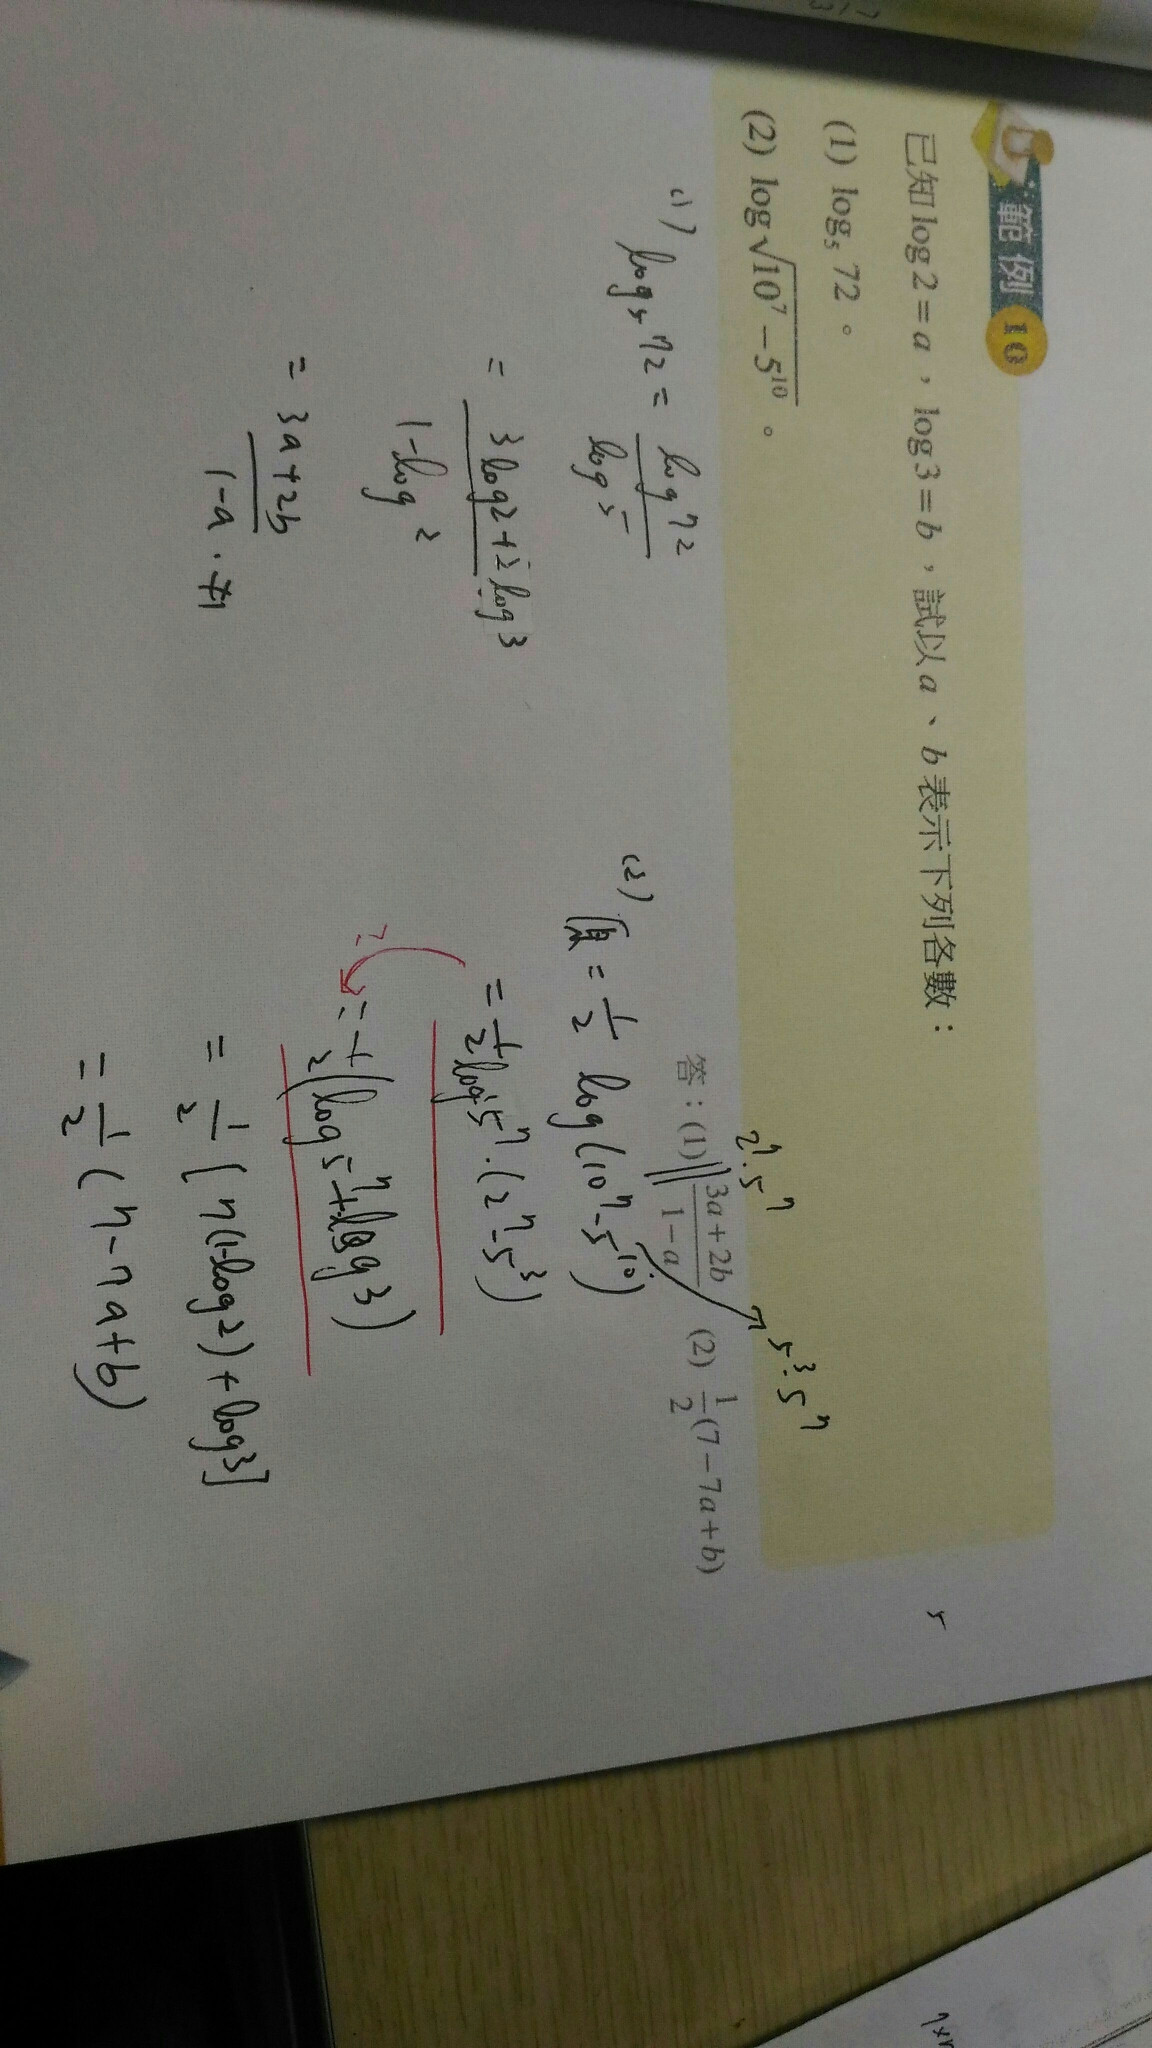 範例 10
已知 log 2 = a，log 3 = b，試以 a、b 表示下列各數：
(1) log₅ 72。
(2) log√(10⁷ − 5¹⁰)。
答：(1) (3a + 2b)/(1 − a) (2) 1/2(7 − 7a + b)
2⁷·5⁷
5³·5⁷
(1) log₅72 = log72/log5
= (3log2 + 2log3)/(1 − log2)
= (3a + 2b)/(1 − a)
(2)
原 = 1/2 log(10⁷ − 5¹⁰)
= 1/2 log 5⁷·(2⁷ − 5³)
?
= 1/2(log5⁷ + log3)
= 1/2[7(1 − log2) + log3]
= 1/2(7 − 7a + b)